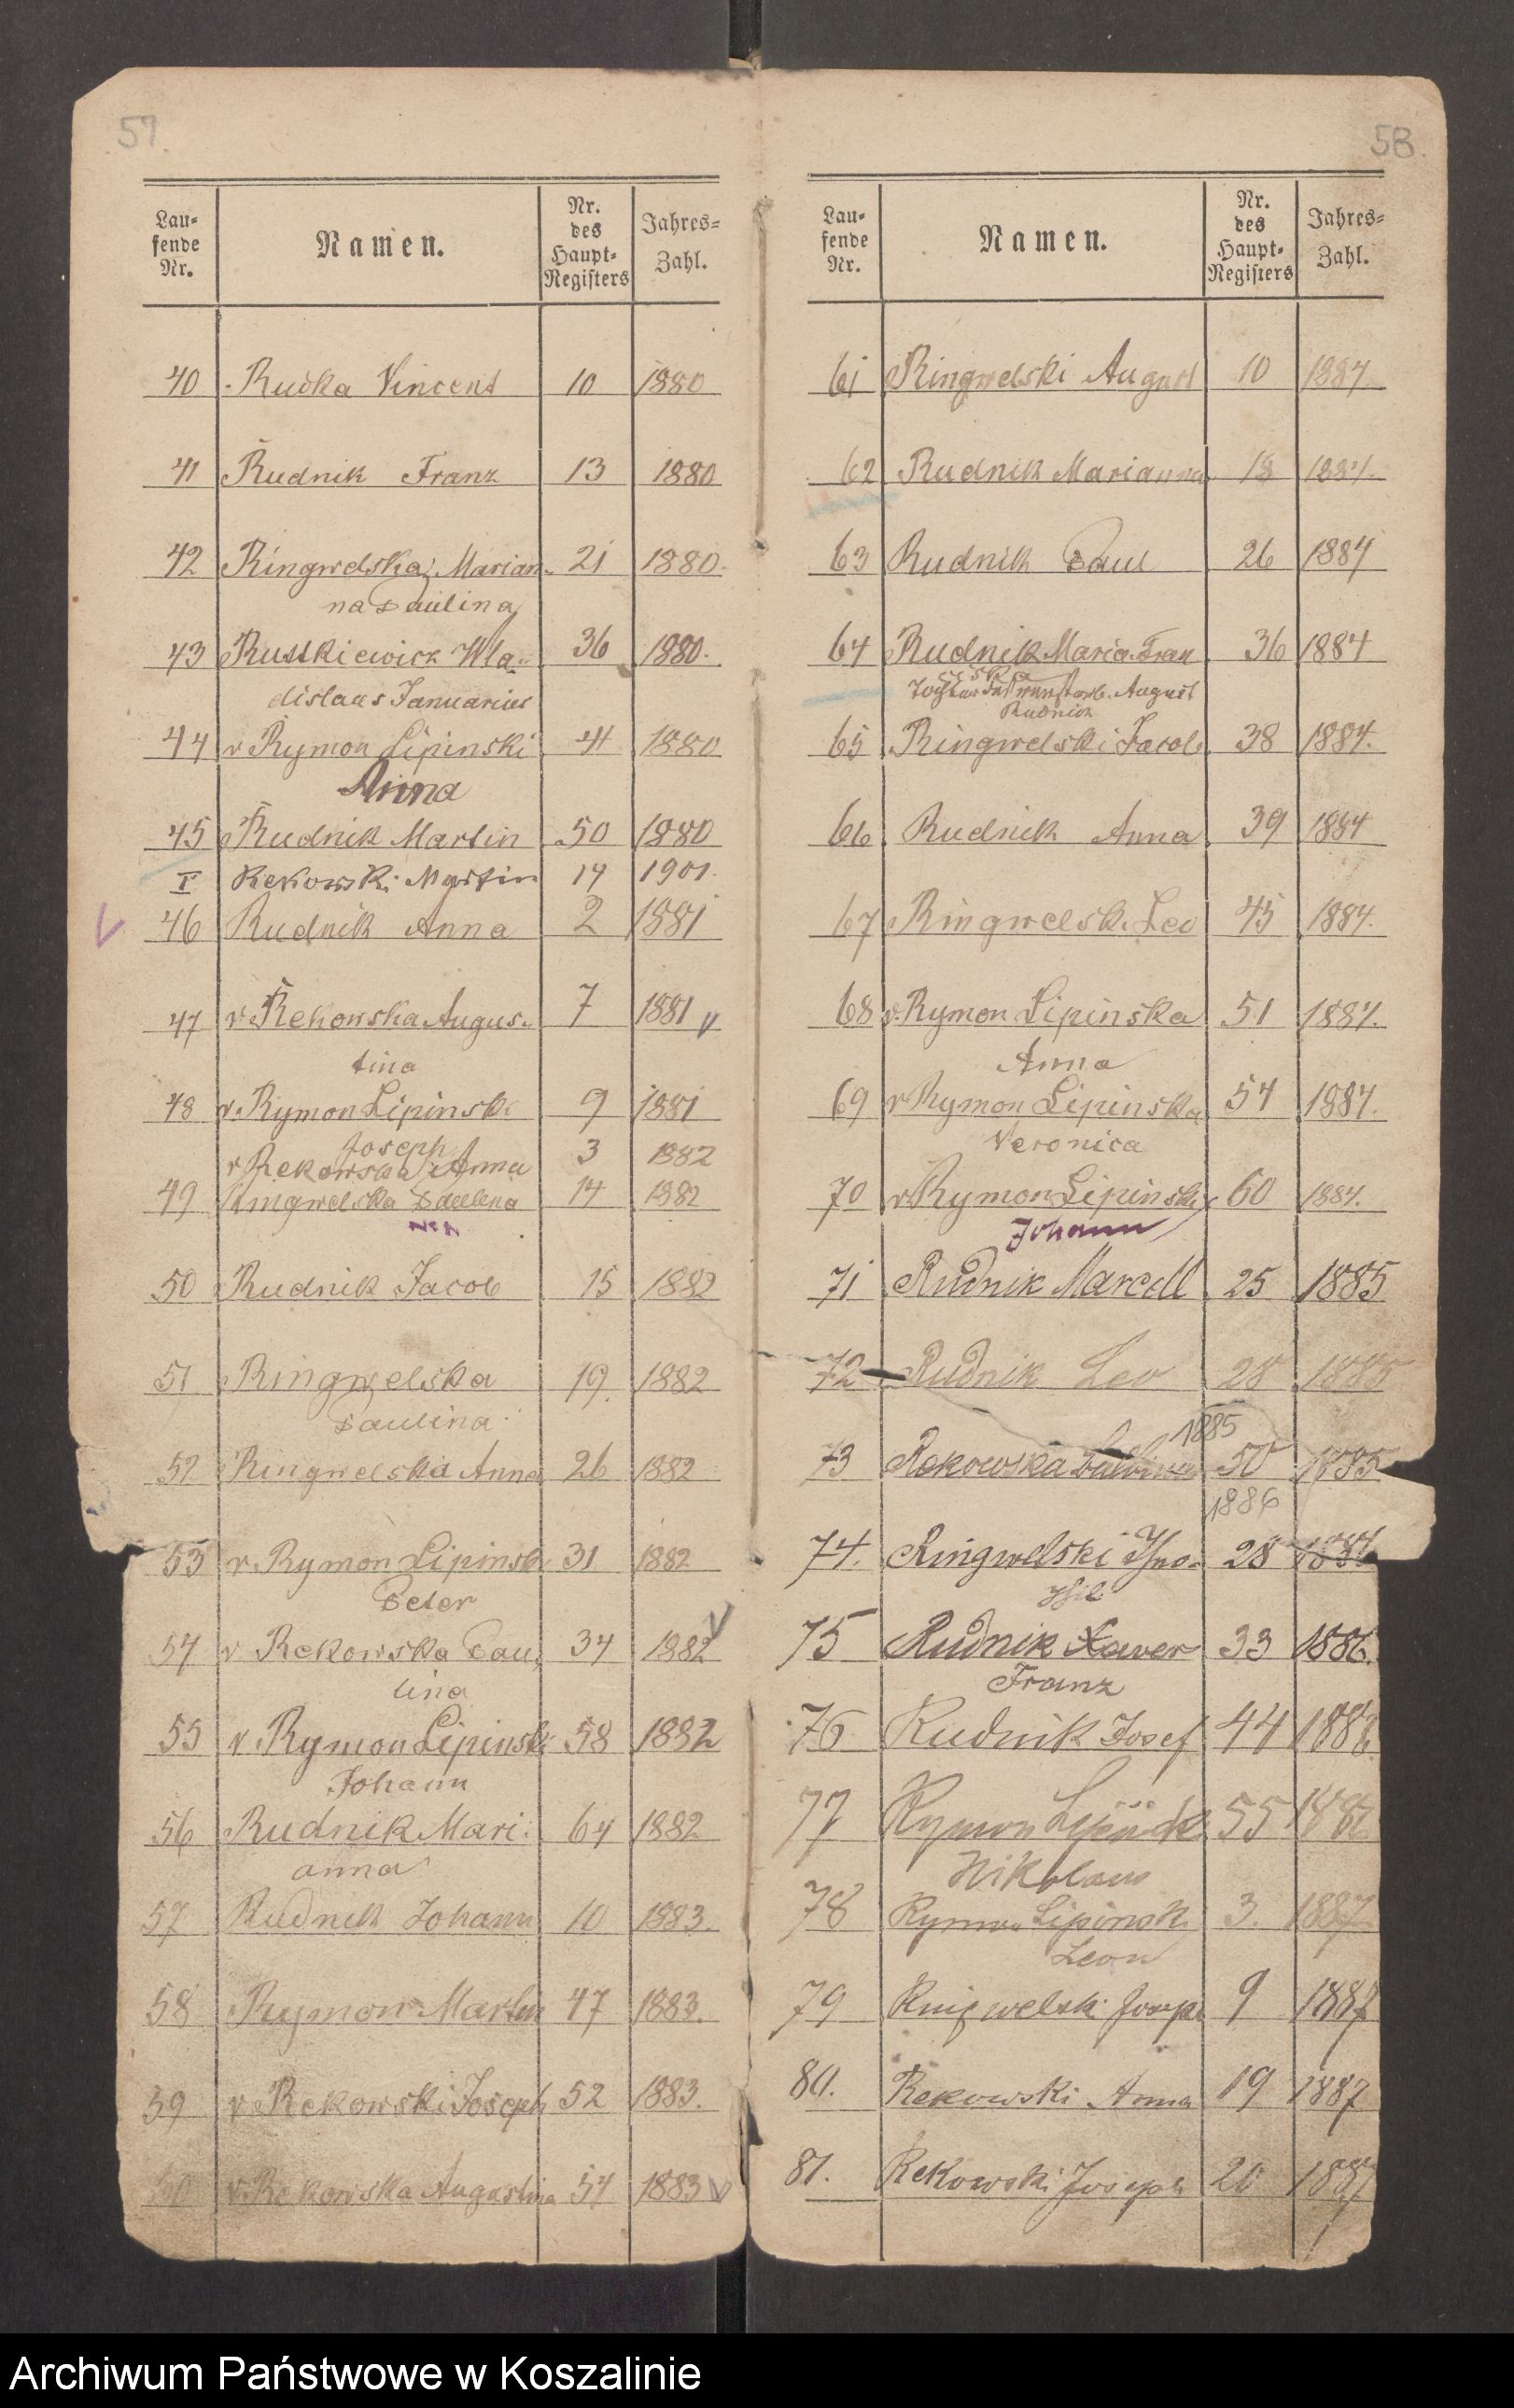 57.
Lau-
fende
Nr.
Namen.
Nr.
des
Haupt-
Registers
Jahres-
Zahl.
40 Rudka Vincent 10 1880
41 Rudnik Franz 13 1880
42 Ringwelska, Marian- 21 1880.
na Paulina
43 Rutkiewicz Wla- 36 1880.
dislaus Januarius
44 v Rymon Lipinski 44 1880
Anna
45 Rudnik Martin 50 1880
I Rekowski Martin 14 1901.
46 Rudnik Anna 2 1881
47 v. Rekowska Augus- 7 1881 v
tina
48 v. Rymon Lipinski 9 1881
Joseph
v Rekowska Anna 3 1882
49 Ringwelska Paulina 14 1882
50 Rudnik Jacob 15 1882
51 Ringwelska 19. 1882
Paulina
52 Ringwelska Anna 26 1882
53 v. Rymon Lipinski 31 1882
Peter
54 v Rekowska Pau- 34 1882 v
lina
55 v. Rymon Lipinski 58 1882
Johann
56 Rudnik Mari- 64 1882
anna
57 Rudnik Johann 10 1883.
58 Rymon Martin 47 1883.
59 v Rekowski Joseph 52 1883.
60 v. Rekowska Augustina 54 1883 v
58.
Lau-
fende
Nr.
Namen.
Nr.
des
Haupt-
Registers
Jahres-
Zahl.
61 Ringwelski August 10 1884
62 Rudnik Marianna 18 1884.
63 Rudnik Paul 26 1884
64 Rudnik Maria Fran 36 1884
ciska
Tochter des August
Rudnick
65 Ringwelski Jacob 38 1884.
66 Rudnik Anna 39 1884
67 Ringwelski Leo 45 1884.
68 v. Rymon Lipinska 51 1884.
Anna
69 v Rymon Lipinska 54 1884.
Veronica
70 v Rymon Lipinski 60 1884.
Johann
71 Rudnik Marcell 25 1885
72 Rudnik Leo 28 1885
1885
73 Rekowska 50 1885
1886
74. Ringwelski 28 1886
75 Rudnik Xaver 33 1886.
Franz
76 Rudnik Josef 44 1886
77 Rymon Lipinski 55 1886
Nikolaus
78 Rymon Lipinski 3. 1887
Leon
79 Ringwelski Joseph 9 1887
80. Rekowski Anna 19 1887
81. Rekowski Joseph 20 1887
Archiwum Państwowe w Koszalinie